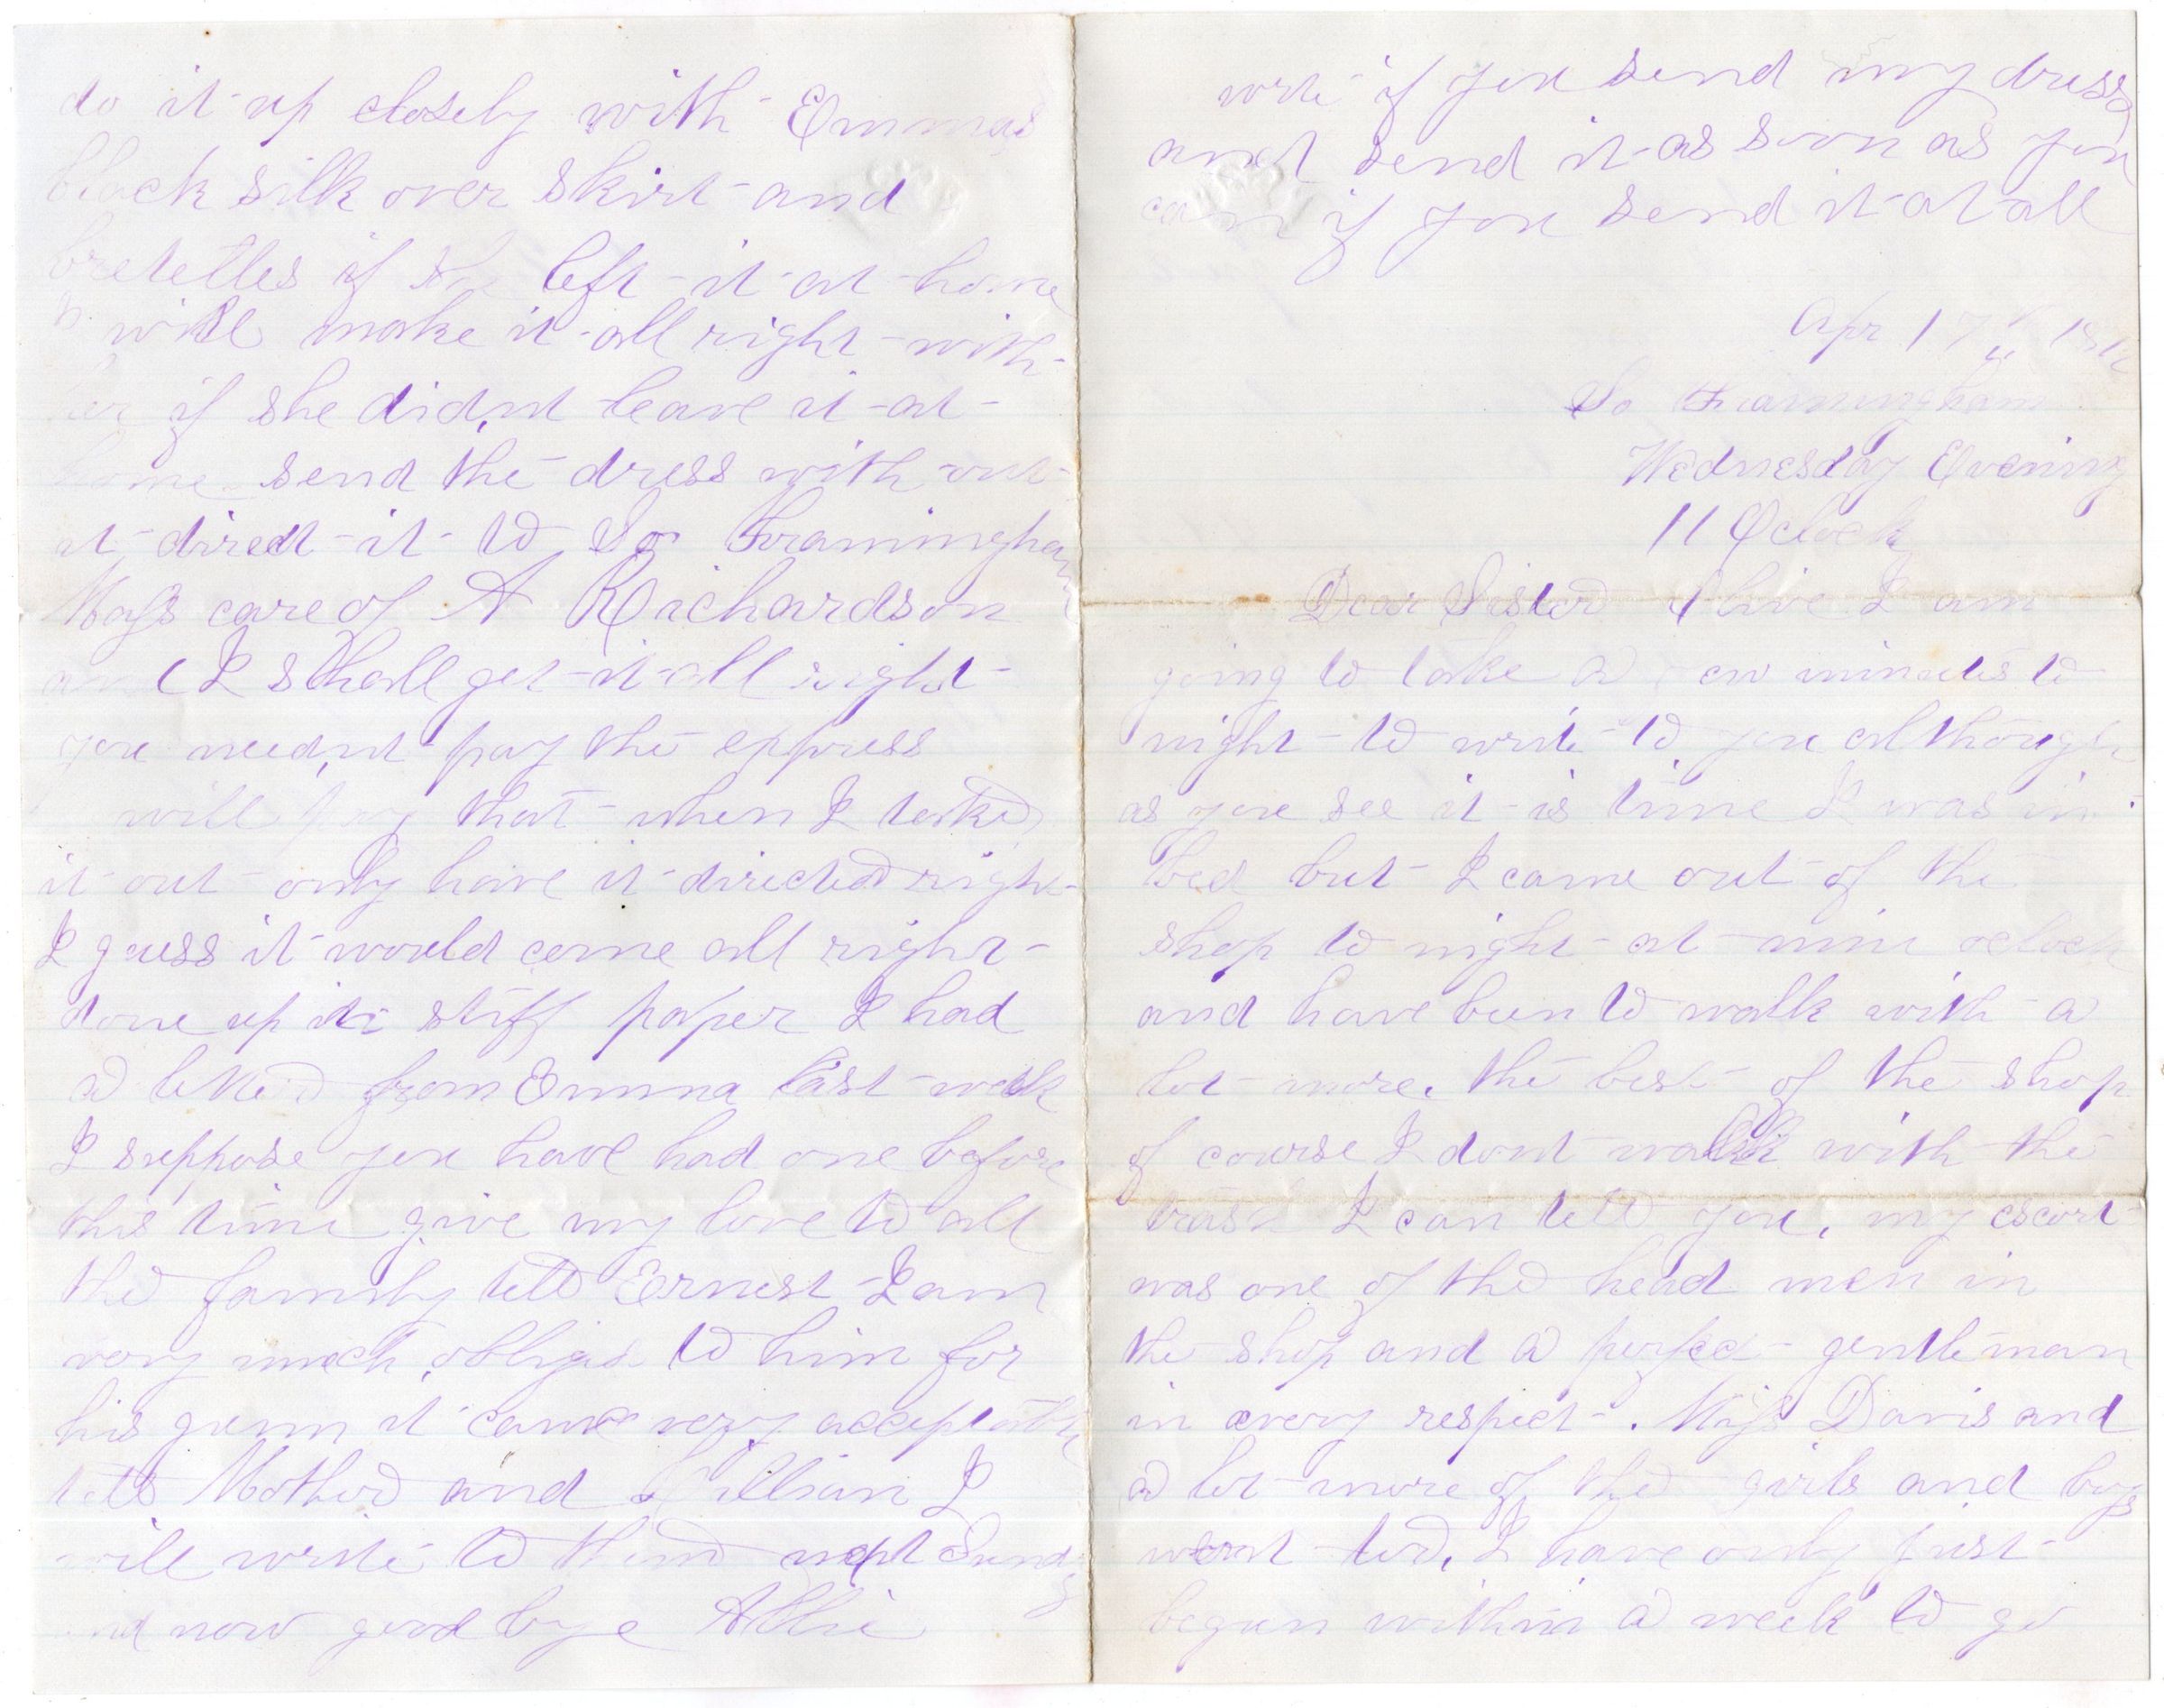 write if you send my dress
and send it as soon as you
can if you send it at all
Apr 17
So Framingham
Wednesday Evening
11 Oclock
Dear Sister Olive I am
going to take a few minutes to
night to write to you although
as you see it is time I was in
bed but I came out of the
shop to night at nine oclock
and have been to walk with a
lot more. the best of the shop
of course I dont walk with the
trash I can tell you, my escort
was one of the head men in
the shop and a perfect gentleman
in every respect. Miss Davis and
a lot more of the girls and boys
went too. I have only just
begun within a week to go
do it up closely with Emmas
black silk over skirt and
bretelles if she left it at home
I will make it all right with
her if she did,nt leave it at
home send the dress with out
it direct it to So Framingham
Mass care of A Richardson
and I shall get it all right
you need,nt pay the express
will pay that when I take
it out only have it directed right
I guess it would come all right
done up in stiff paper I had
a letter from Emma last week
I suppose you have had one before
this time give my love to all
the family tell Ernest I am
very much obliged to him for
his gum it came very acceptable
tell Mother and Lillian I
will write to them next Sunday
and now good bye Abbie